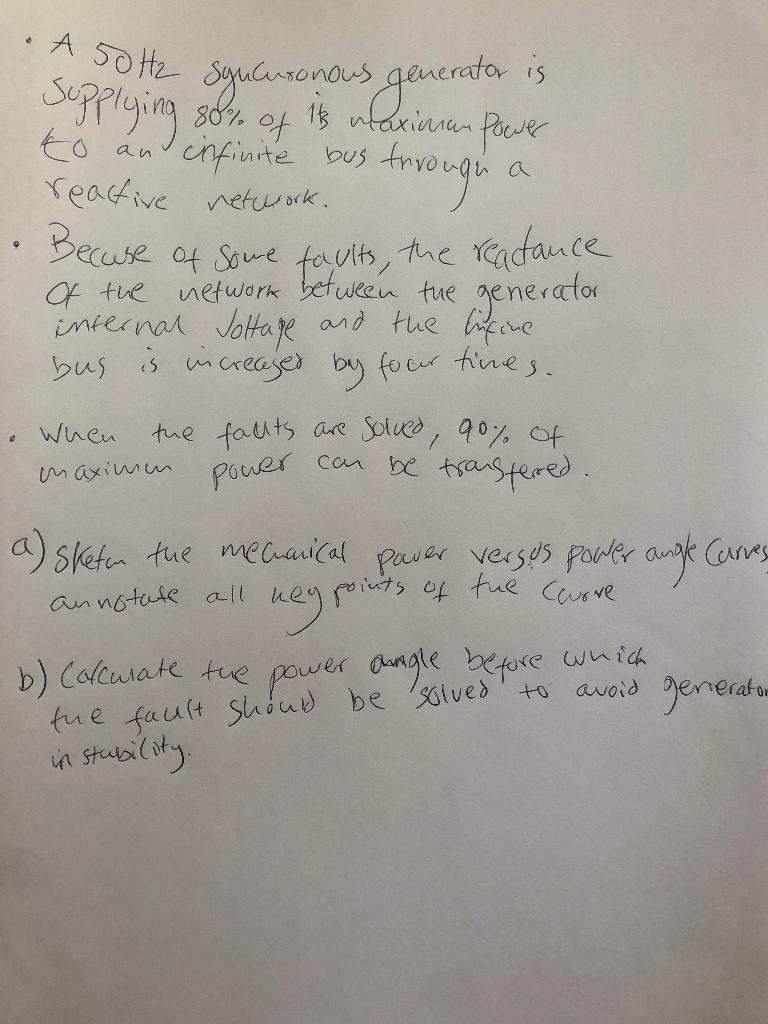 • A 50Hz synchronous generator is
supplying 80% of its maximum power
to an infinite bus through a
reactive network.
• Becuse of some faults, the reactance
of the network between the generator
internal voltage and the
bus is increased by four times.
• When the faults are solved, 90% of
maximum power can be transferred.
a) Sketch the mechanical power versus power angle curves,
annotate all key points of the curve
b) Calculate the power angle before which
the fault should be solved to avoid generator
instability.